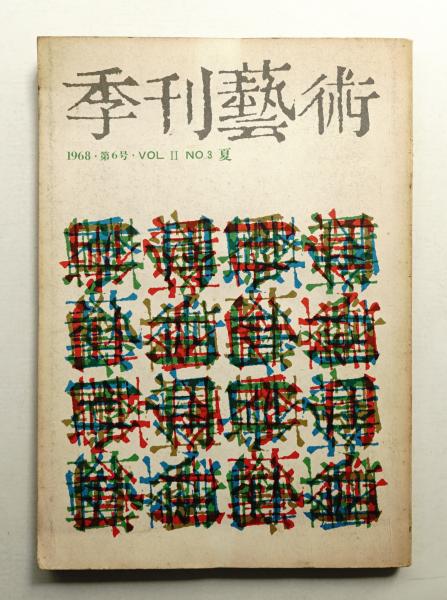 季刊藝術
1968・第6号・VOL. II NO.3 夏